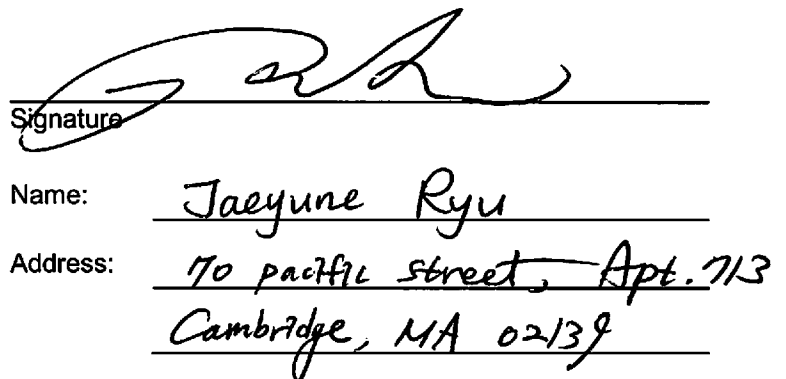 Signature
Name: Jaeyune Ryu
Address: 70 pacific street, Apt. 713
Cambridge, MA 02139